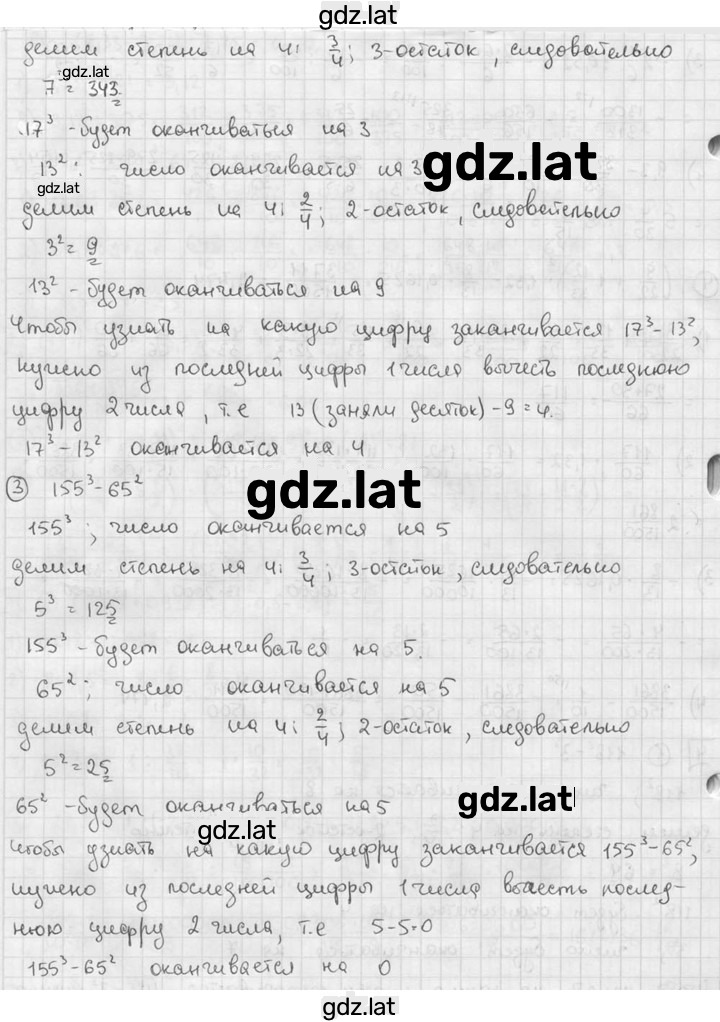 gdz.lat
делим степень на 4: 3/4; 3-остаток, следовательно
gdz.lat
7³ = 343.
17³ - будет оканчиваться на 3
13²: число оканчивается на 3
gdz.lat
gdz.lat
делим степень на 4: 2/4; 2-остаток, следовательно
3² = 9
13² - будет оканчиваться на 9
Чтобы узнать на какую цифру заканчивается 17³ - 13²,
нужно из последней цифры 1 числа вычесть последнюю
цифру 2 числа, т.е 13 (заняли десяток) - 9 = 4.
17³ - 13² оканчивается на 4
③ 155³ - 65²
gdz.lat
155³; число оканчивается на 5
делим степень на 4: 3/4; 3-остаток, следовательно
5³ = 125
155³ - будет оканчиваться на 5.
65²; число оканчивается на 5
делим степень на 4: 2/4; 2-остаток, следовательно
5² = 25
65² - будет оканчиваться на 5
gdz.lat
gdz.lat
Чтобы узнать на какую цифру заканчивается 155³ - 65²,
нужно из последней цифры 1 числа вычесть послед-
нюю цифру 2 числа, т.е 5-5=0
155³ - 65² оканчивается на 0
gdz.lat